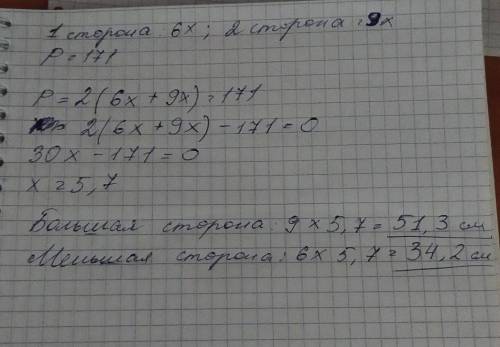 1 сторона: 6x; 2 сторона: 9x
P = 171
P = 2(6x + 9x) = 171
2(6x + 9x) - 171 = 0
30x - 171 = 0
x = 5,7
Большая сторона: 9 x 5,7 = 51,3 см
Меньшая сторона: 6 x 5,7 = 34,2 см